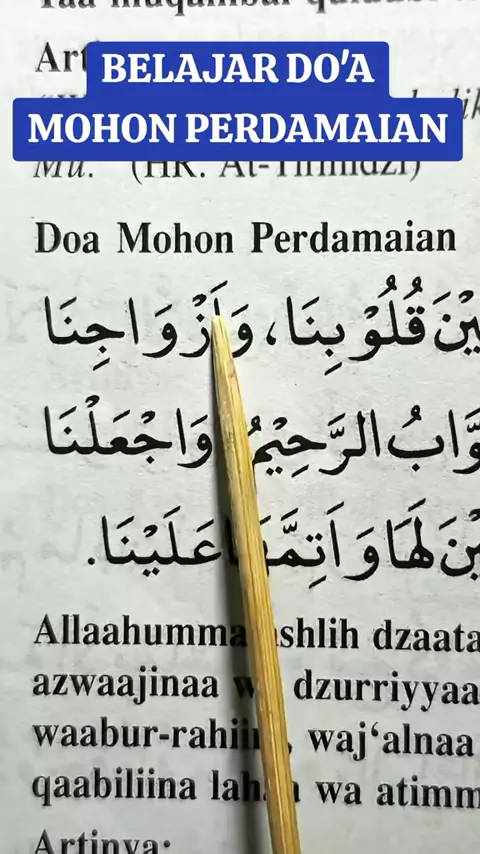 BELAJAR DO'A
MOHON PERDAMAIAN
Mu. (HR. At-Tirmidzi)
Doa Mohon Perdamaian
قُلُوْبِنَا، وَأَزْوَاجِنَا
الرَّحِيْمُ وَاجْعَلْنَا
لَهَا وَأَتِمَّهَا عَلَيْنَا.
Allaahumma ashlih dzaata
azwaajinaa wa dzurriyyaa
waabur-rahiim, waj‘alnaa
qaabiliina lahaa wa atimm
Artinya: